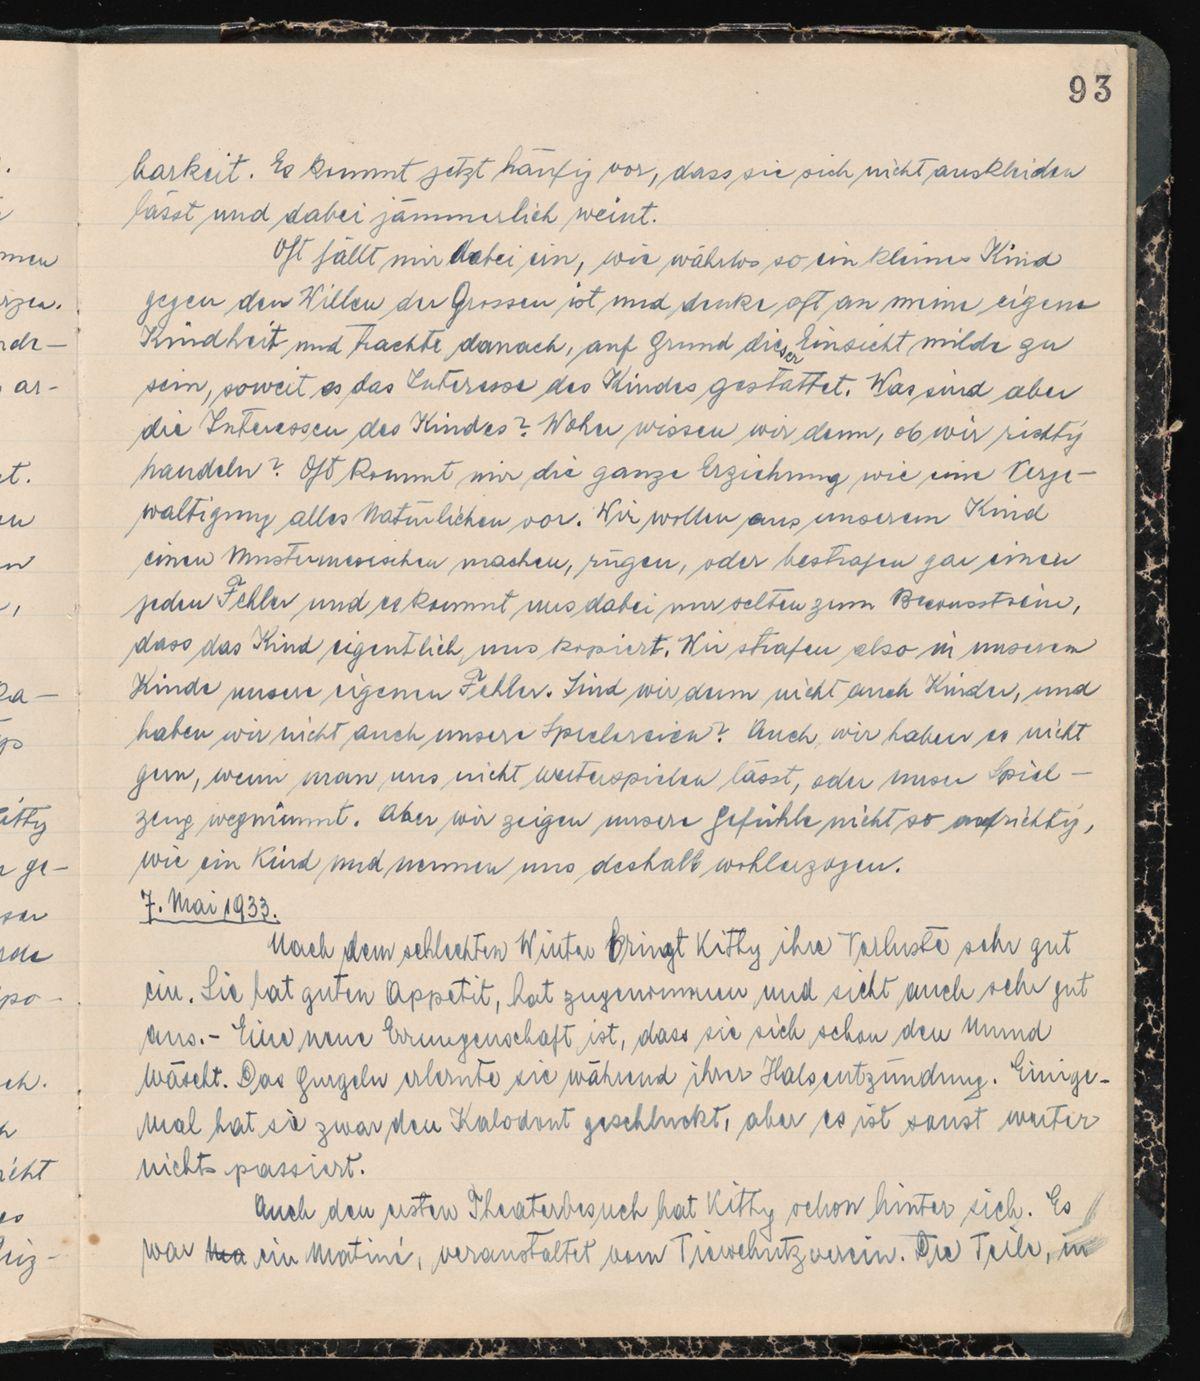 93
barkeit. Es kommt jetzt häufig vor, dass sie sich nicht auskleiden
lässt und dabei jämmerlich weint.
Oft fällt mir dabei ein, wie wehrlos so ein kleines Kind
gegen den Willen der Grossen ist und denke oft an meine eigene
Kindheit und trachte danach, auf Grund dieser Einsicht milde zu
sein, soweit es das Interesse des Kindes gestattet. Was sind aber
die Interessen des Kindes? Woher wissen wir denn, ob wir richtig
handeln? Oft kommt mir die ganze Erziehung wie eine Verge-
waltigung alles Natürlichen vor. Wir wollen aus unserem Kind
einen Mustermenschen machen, rügen, oder bestrafen gar einen
jeden Fehler und es kommt uns dabei nur selten zum Bewusstsein,
dass das Kind eigentlich uns kopiert. Wir strafen also in unserem
Kinde unsere eigenen Fehler. Sind wir denn nicht auch Kinder, und
haben wir nicht auch unsere Spielereien? Auch wir haben es nicht
gern, wenn man uns nicht weiterspielen lässt, oder unser Spiel-
zeug wegnimmt. Aber wir zeigen unsere Gefühle nicht so aufrichtig,
wie ein Kind und nennen uns deshalb wohlerzogen.
7. Mai 1933.
Nach dem schlechten Winter bringt Kitty ihre Verluste sehr gut
ein. Sie hat guten Appetit, hat zugenommen und sieht auch sehr gut
aus. - Eine neue Errungenschaft ist, dass sie sich schon den Mund
wäscht. Das Gurgeln erlernte sie während ihrer Halsentzündung. Einige-
mal hat sie zwar den Kalodont geschluckt, aber es ist sonst weiter
nichts passiert.
Auch den ersten Theaterbesuch hat Kitty schon hinter sich. Es
war Ma ein Matiné, veranstaltet vom Tierschutzverein. Die Teile, in